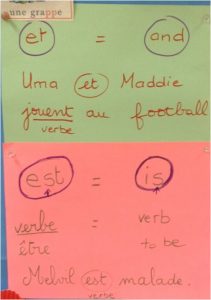 une grappe
et = and
Uma et Maddie
jouent au football
verbe
est = is
verbe = verb
être to be
Melvil est malade.
verbe